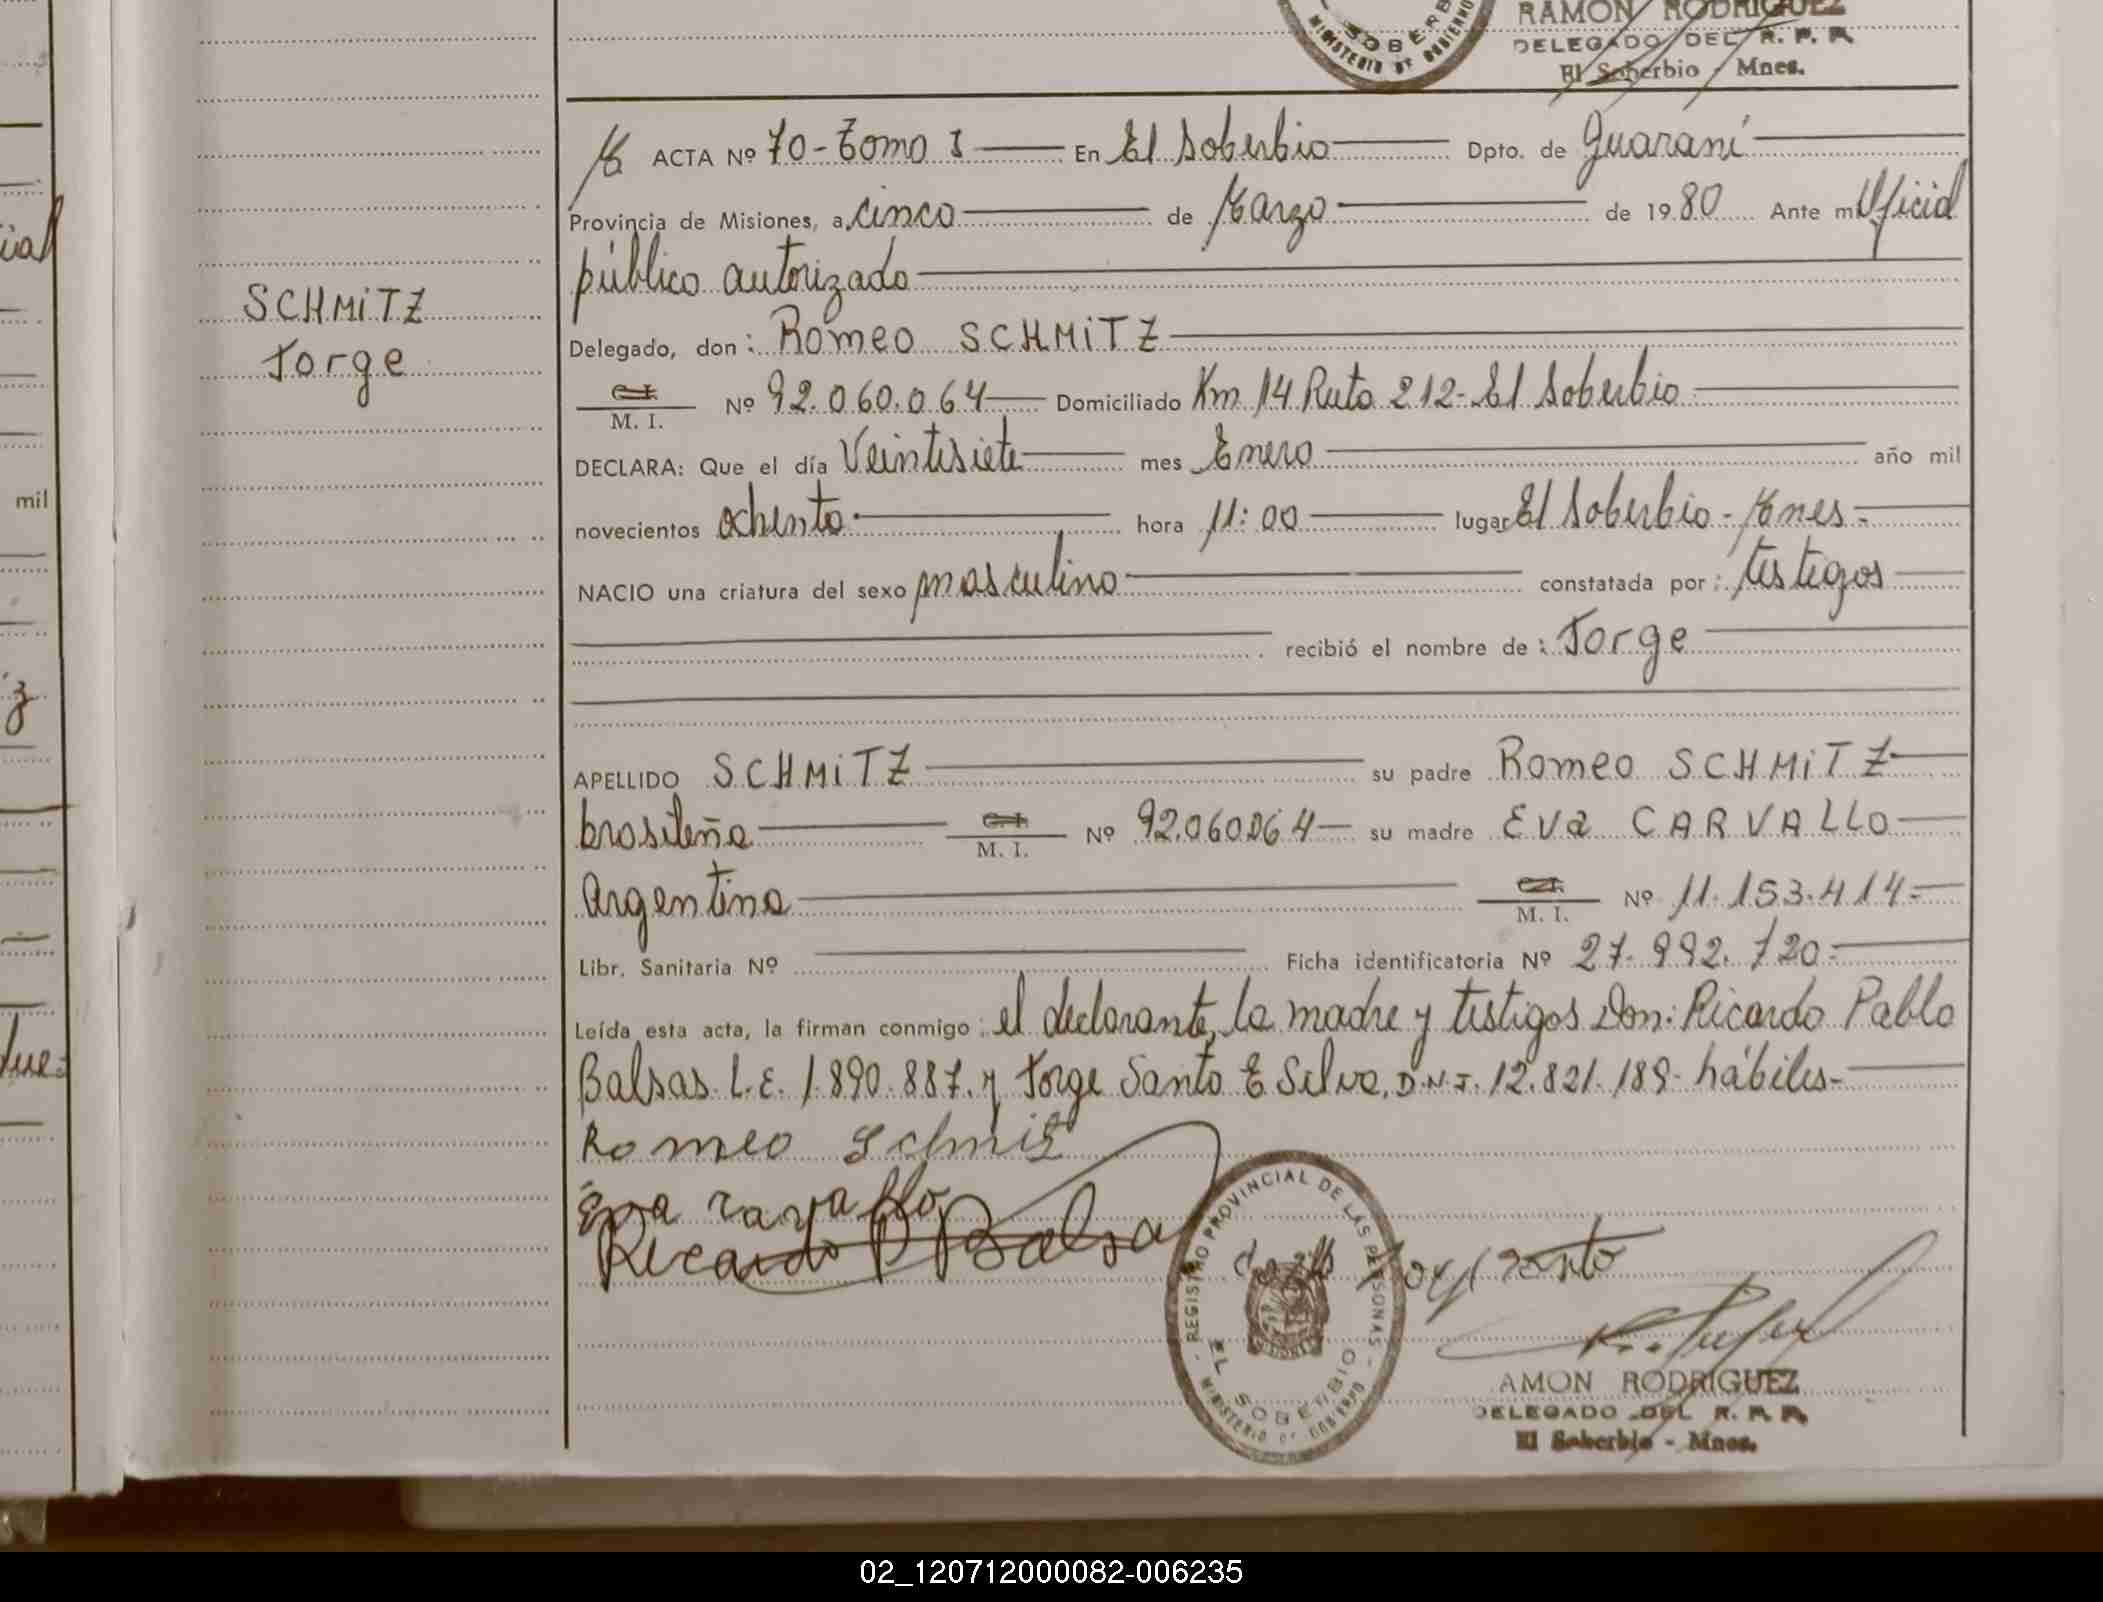 SOBERB
MINISTERIO DE GOBIERNO
RAMON RODRIGUEZ
DELEGADO DEL R. P. P.
El Soberbio - Mnes.
M ACTA Nº 70 - Tomo I En El Soberbio Dpto. de Guaraní
Provincia de Misiones, a cinco de Marzo de 1980 Ante mí Oficial
público autorizado
Delegado, don: Romeo SCHMiTZ
C.I. M. I. Nº 92.060.064 Domiciliado Km 14 Ruta 212 - El Soberbio
DECLARA: Que el día Veintisiete mes Enero año mil
novecientos ochenta. hora 11:00 lugar El Soberbio - Mnes -
NACIO una criatura del sexo masculino constatada por: testigos
recibió el nombre de: Jorge
APELLIDO SCHMiTZ su padre Romeo SCHMiTZ
brasileña C.I. M. I. Nº 92.060.064 su madre Eva CARVALLO
Argentina C.I. M. I. Nº 11.153.414 -
Libr. Sanitaria Nº Ficha identificatoria Nº 27.992.720 -
Leída esta acta, la firman conmigo: el declarante, la madre y testigos Don: Ricardo Pablo
Balsas L.E. 1.890.887. y Jorge Santo E Silva, D.N.I. 12.821.189 - hábiles -
Romeo Schmitz
Eva Carvallo
Ricardo P Balsa
REGISTRO PROVINCIAL DE LAS PERSONAS
EL SOBERBIO
MINISTERIO DE GOBIERNO
AMON RODRIGUEZ
DELEGADO DEL R. P. P.
El Soberbio - Mnes.
SCHMiTZ
Jorge
mil
02_120712000082-006235